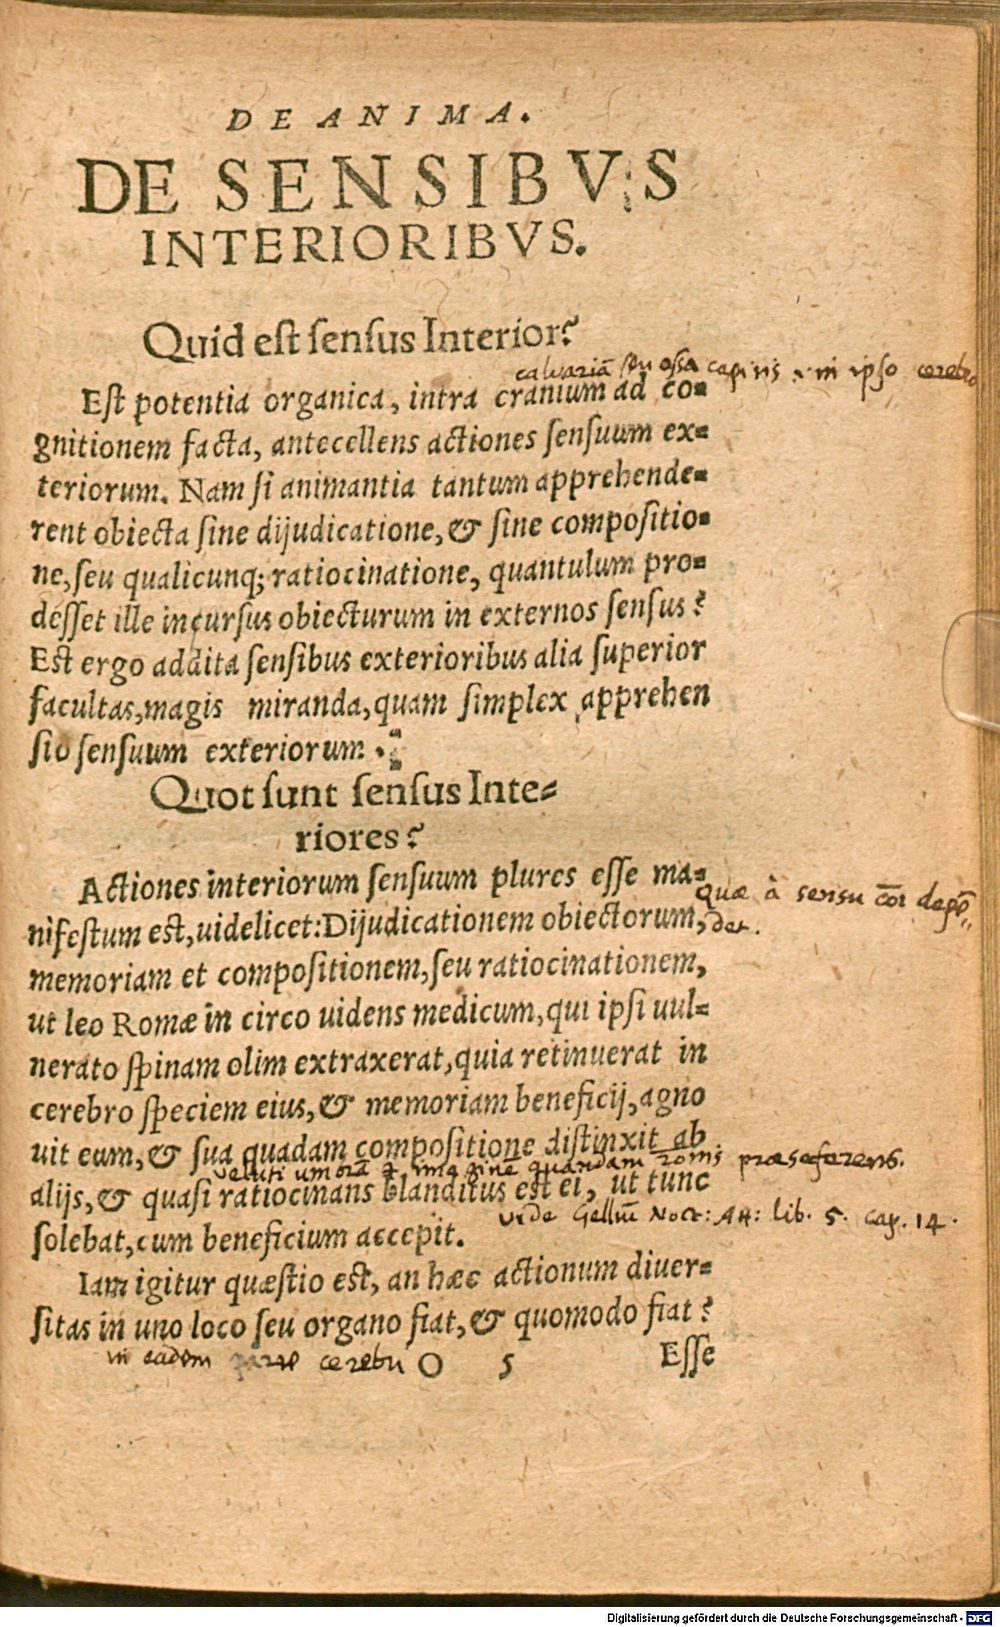 DE ANIMA.
DE SENSIBVS
INTERIORIBVS.
Quid est sensus Interior?
calvariã seu ossa capitis in ipso cerebro
Est potentia organica, intra cranium ad co=
gnitionem facta, antecellens actiones sensuum ex=
teriorum. Nam si animantia tantum apprehende=
rent obiecta sine dijudicatione, & sine compositio=
ne, seu qualicunq; ratiocinatione, quantulum pro=
desset ille incursus obiecturum in externos sensus?
Est ergo addita sensibus exterioribus alia superior
facultas, magis miranda, quam simplex apprehen
sio sensuum exteriorum.
Quot sunt sensus Inte=
riores?
Actiones interiorum sensuum plures esse ma=
quæ à sensu cõi depẽ=
nifestum est, uidelicet: Dijudicationem obiectorum,
det.
memoriam et compositionem, seu ratiocinationem,
ut leo Romæ in circo uidens medicum, qui ipsi uul=
nerato spinam olim extraxerat, quia retinuerat in
cerebro speciem eius, & memoriam beneficij, agno
uit eum, & sua quadam compositione distinxit ab
veluti umbrã & imaginẽ quandam rõnis præseferens.
alijs, & quasi ratiocinans blanditus est ei, ut tunc
vide Gelliũ Noct: Att: lib. 5. cap. 14.
solebat, cum beneficium accepit.
Iam igitur quæstio est, an hæc actionum diuer=
sitas in uno loco seu organo fiat, & quomodo fiat?
in eadem parte cerebri
O 5 Esse
Digitalisierung gefördert durch die Deutsche Forschungsgemeinschaft - DFG